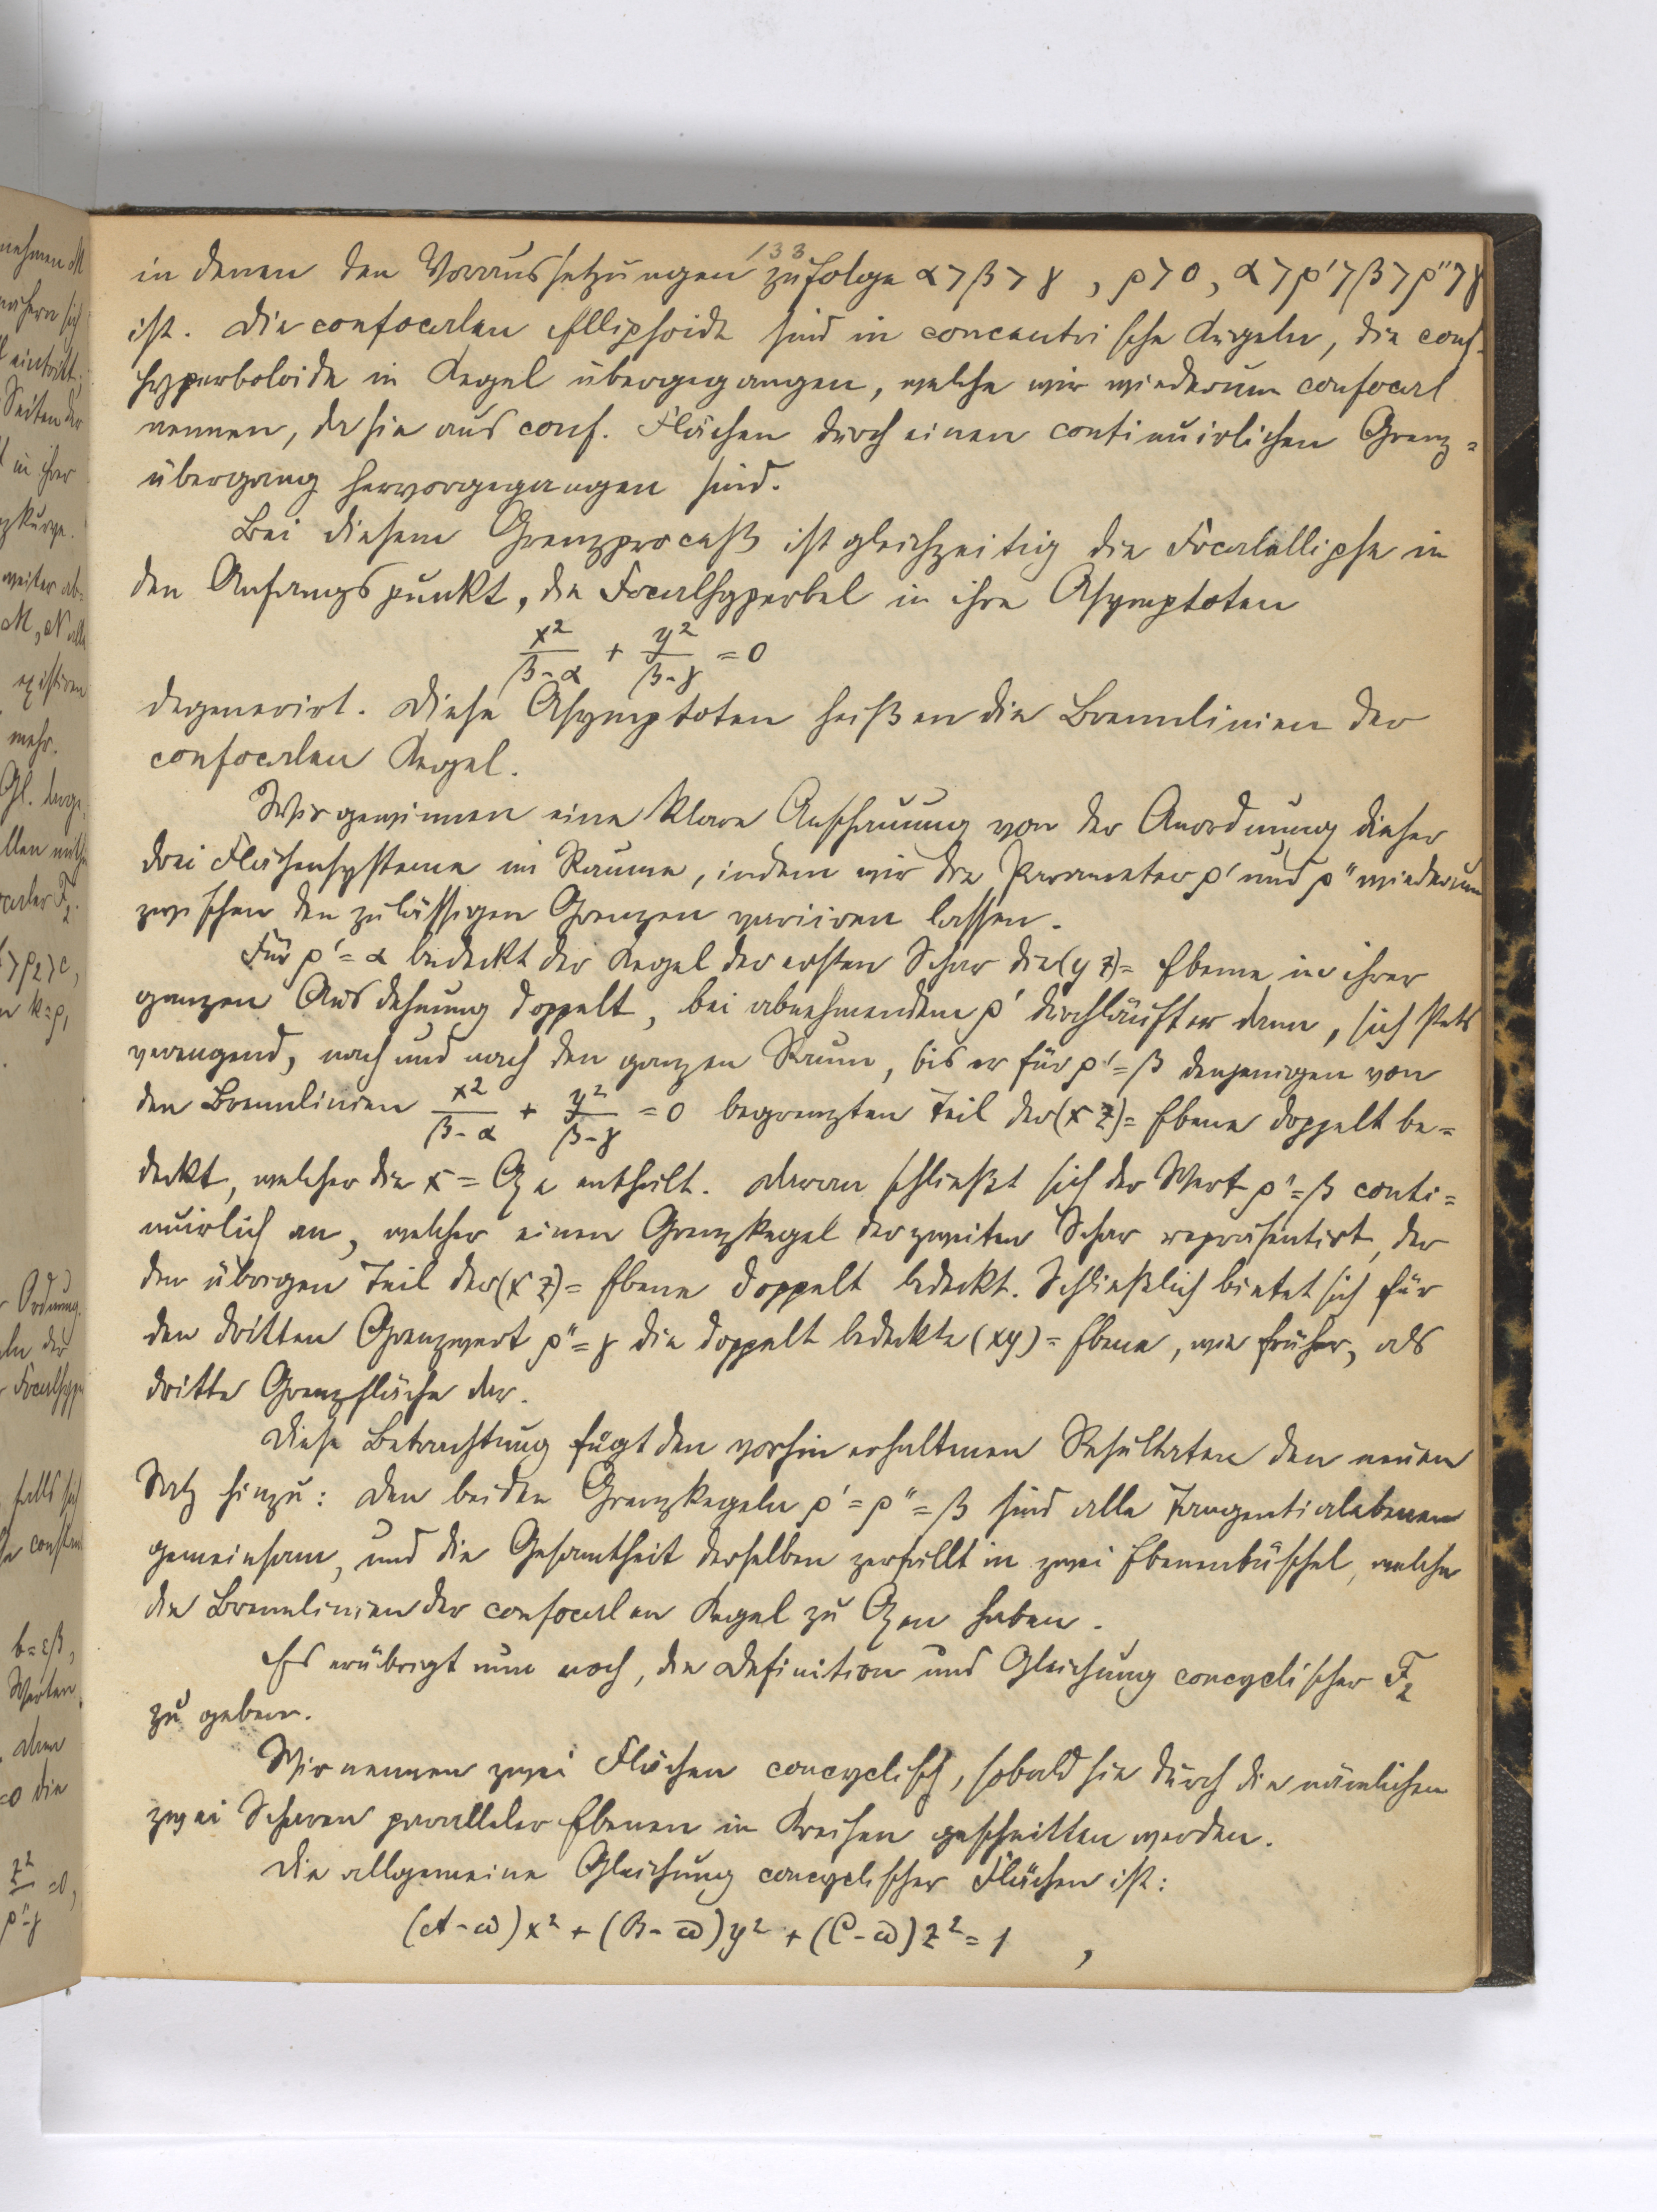 133
in denen den Voraussetzungen zufolge α > β > γ , ρ > 0, α > ρ' > β > ρ'' > γ
ist. Die confocalen Ellipsoide sind in concentrische Kugeln, die conf.
Hyperboloide in Kegel übergegangen, welche wir wiederum confocal
nennen, da sie aus conf. Flächen durch einen continuirlichen Grenz=
übergang hervorgegangen sind.
Bei diesem Grenzproceß ist gleichzeitig die Focalellipse in
den Anfangspunkt, die Focalhyperbel in ihre Asymptoten
x²/(β-α) + y²/(β-γ) = 0
degenerirt. Diese Asymptoten heißen die Brennlinien der
confocalen Kegel.
Wir gewinnen eine klare Anschauung von der Anordnung dieser
drei Flächensysteme im Raume, indem wir die Parameter ρ' und ρ'' wiederum
zwischen den zulässigen Grenzen variiren lassen.
Für ρ' = α bedeckt der Kegel der ersten Schar die (yz)= Ebene in ihrer
ganzen Ausdehnung doppelt, bei abnehmendem ρ' durchläuft er dann, sich stets
verengend, nach und nach den ganzen Raum, bis er für ρ' = β denjenigen von
den Brennlinien x²/(β-α) + y²/(β-γ) = 0 begrenzten Teil der (xz)= Ebene doppelt be=
deckt, welcher die x = Axe enthält. Daran schließt sich der Wert ρ'' = β conti=
nuirlich an, welcher einen Grenzkegel der zweiten Schar repräsentirt, der
den übrigen Teil der (xz)= Ebene doppelt bedeckt. Schließlich bietet sich für
den dritten Grenzwert ρ'' = γ die doppelt bedeckte (xy)= Ebene, wie früher, als
dritte Grenzfläche dar.
Diese Betrachtung fügt den vorhin erhaltenen Resultaten den neuen
Satz hinzu: Den beiden Grenzkegeln ρ' = ρ'' = β sind alle Tangentialebenen
gemeinsam, und die Gesamtheit derselben zerfällt in zwei Ebenenbüschel, welche
die Brennlinien der confocalen Kegel zu Axen haben.
Es erübrigt nun noch, die Definition und Gleichung concyclischer F₂
zu geben.
Wir nennen zwei Flächen concyclisch, sobald sie durch die nämlichen
zwei Scharen paralleler Ebenen in Kreisen geschnitten werden.
Die allgemeine Gleichung concyclischer Flächen ist:
(A-ω)x² + (B-ω)y² + (C-ω)z² = 1 ,